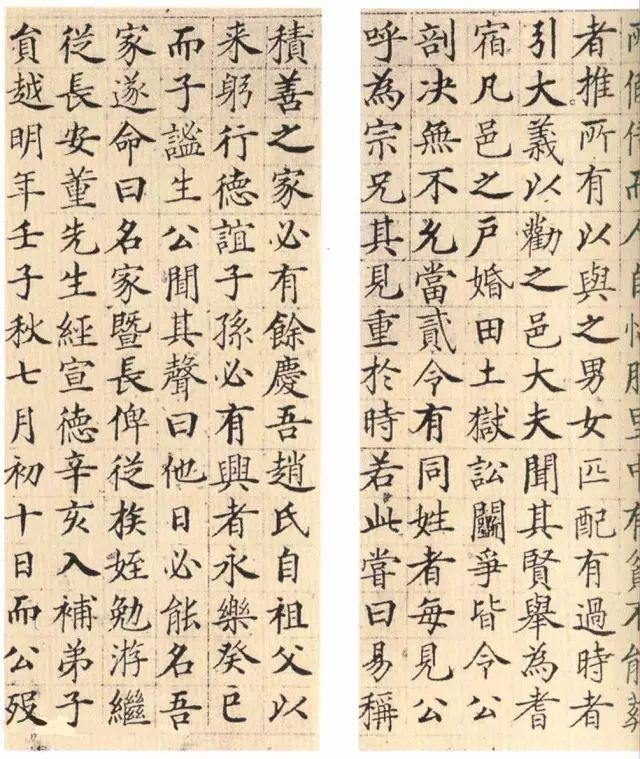 所而人自服里中有貧不能葬
者推所有以與之男女匹配有過時者
引大義以勸之邑大夫聞其賢舉為耆
宿凡邑之戶婚田土獄訟鬭爭皆令公
剖决無不允當貳令有同姓者每見公
呼為宗兄其見重於時若此嘗曰易稱
積善之家必有餘慶吾趙氏自祖父以
来躬行德誼子孫必有興者永樂癸巳
而子謐生公聞其聲曰他日必能名吾
家遂命曰名家暨長俾從族姪勉游繼
從長安董先生經宣德辛亥入補弟子
員越明年壬子秋七月初十日而公歿